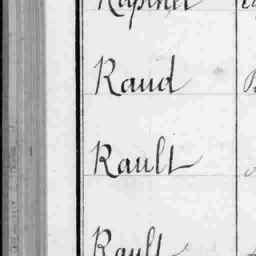 Raud
Rault
Rault